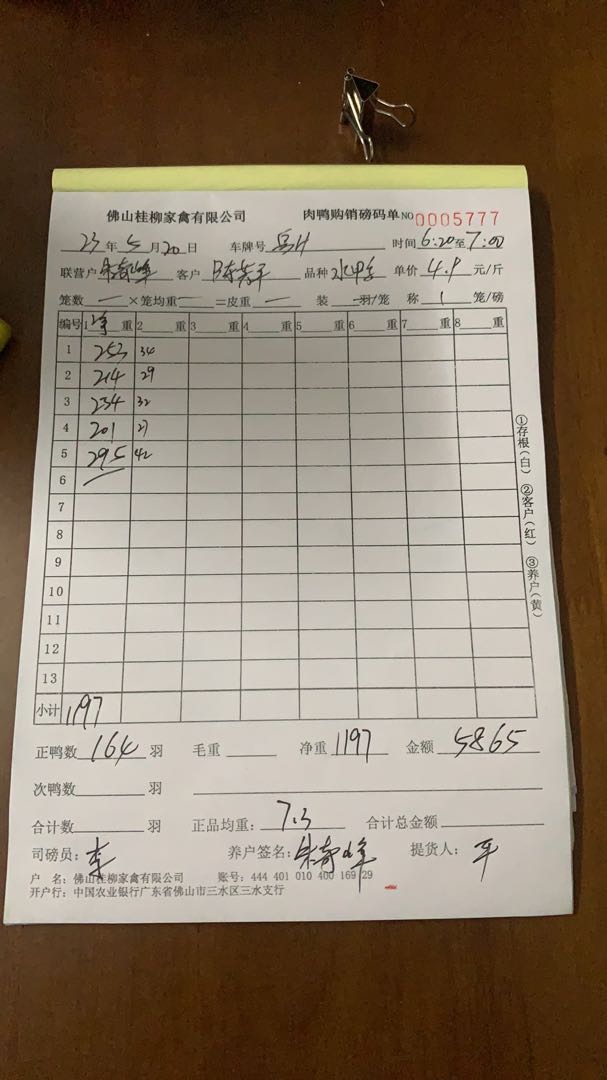 佛山桂柳家禽有限公司 肉鸭购销磅码单 NO 0005777
23年5月20日 车牌号 时间 6:20至7:00
联营户 朱奇峰 客户 陈芳平 品种 水甲 单价 4.9 元/斤
笼数 一 ×笼均重 一 =皮重 一 装 一 羽/笼 称 1 笼/磅
编号 1 净 重 2 重 3 重 4 重 5 重 6 重 7 重 8 重
1 253 34
2 214 29
3 234 32
4 201 27
5 295 42
6
7
8
9
10
11
12
13
小计 1197
正鸭数 164 羽 毛重 净重 1197 金额 5865
次鸭数 羽
合计数 羽 正品均重: 7.3 合计总金额
司磅员: 李 养户签名: 朱奇峰 提货人: 平
户 名: 佛山桂柳家禽有限公司 账号: 444 401 010 400 169 29
开户行: 中国农业银行广东省佛山市三水区三水支行
①存根(白) ②客户(红) ③养户(黄)